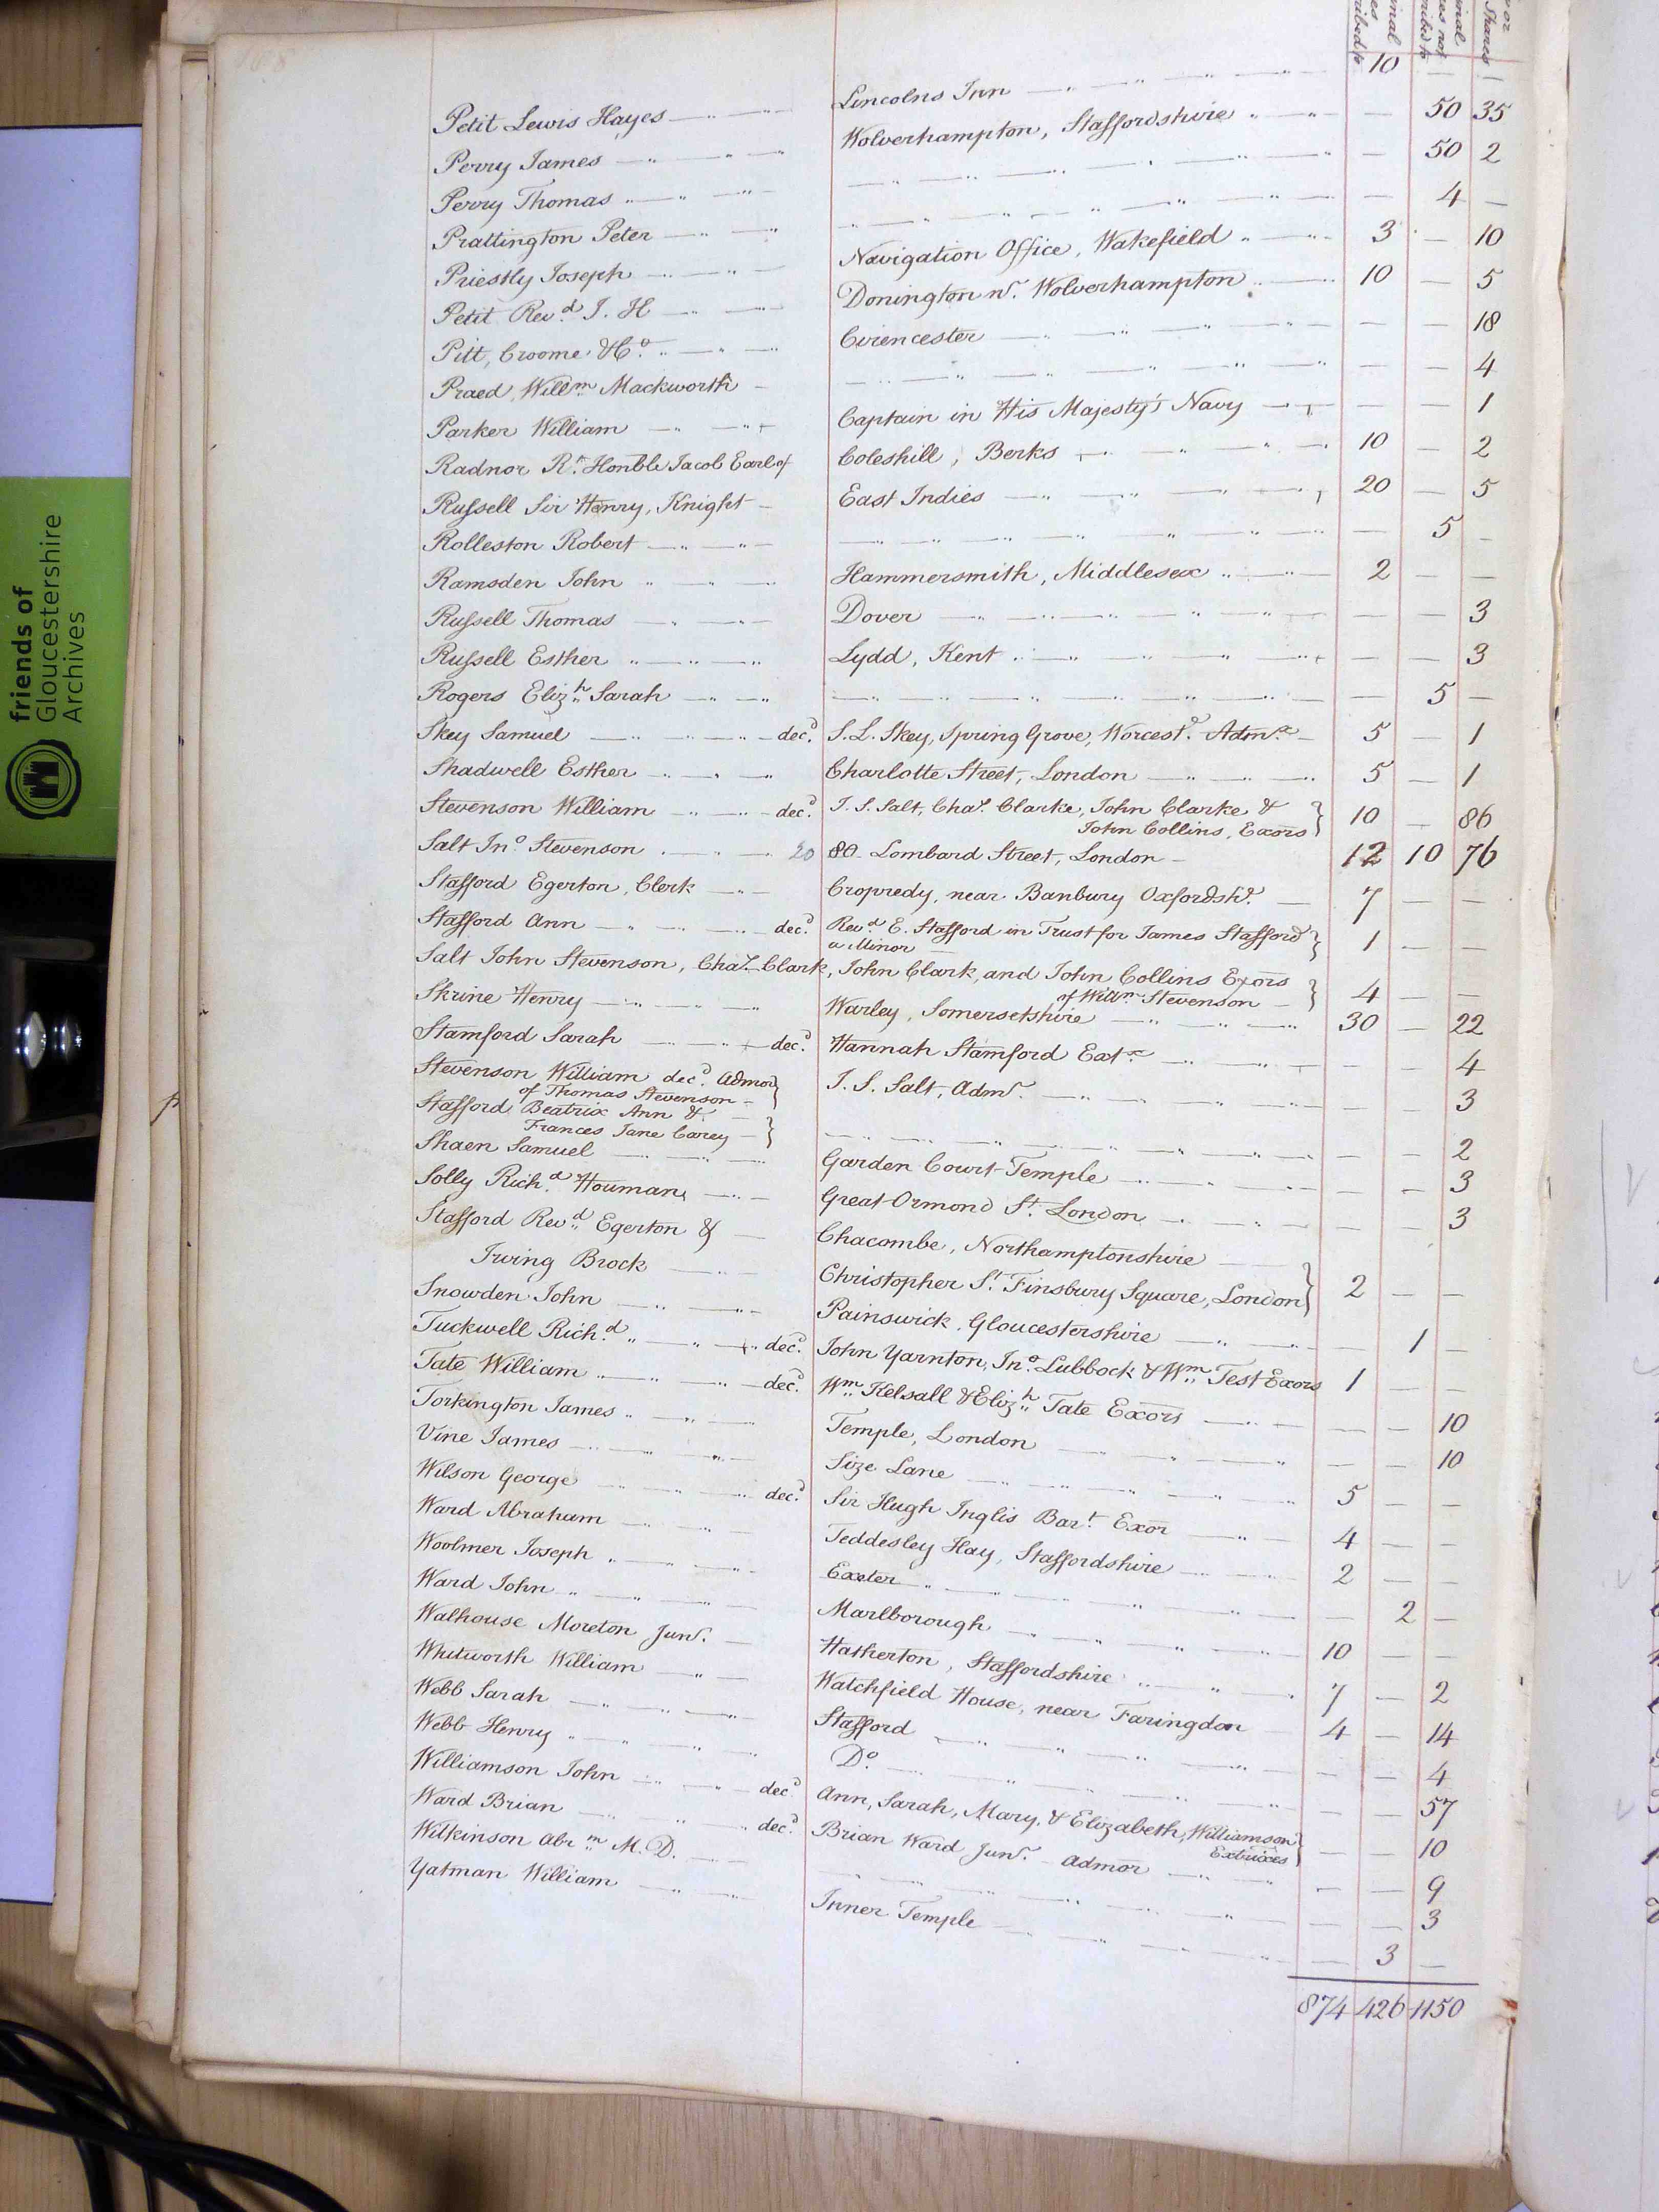 Petit Lewis Hayes Lincolns Inn 10 — —
Perry James Wolverhampton, Staffordshire — 50 35
Perry Thomas — 50 2
Prattington Peter — 4 —
Priestly Joseph Navigation Office, Wakefield 3 — 10
Petit Revd. J. H Donington nr. Wolverhampton 10 — 5
Pitt, Croome & Co. Cirencester — — 18
Praed Willm. Mackworth — — 4
Parker William Captain in His Majesty's Navy — — 1
Radnor Rt. Honble Jacob Earl of Coleshill, Berks 10 — 2
Russell Sir Henry, Knight East Indies 20 — 5
Rolleston Robert — 5 —
Ramsden John Hammersmith, Middlesex 2 — —
Russell Thomas Dover — — 3
Russell Esther Lydd, Kent — — 3
Rogers Elizh. Sarah — 5 —
Skey Samuel decd. S. L. Skey, Spring Grove, Worcestr. Admx. 5 — 1
Shadwell Esther Charlotte Street, London 5 — 1
Stevenson William decd. J. S. Salt, Chas. Clarke, John Clarke &
John Collins, Exors 10 — 86
Salt Jno. Stevenson 20 80 Lombard Street, London 12 10 76
Stafford Egerton, Clerk Cropredy, near Banbury Oxfordshe. 7 — —
Stafford Ann decd. Revd. E. Stafford in Trust for James Stafford
a Minor 1 — —
Salt John Stevenson, Chas. Clark, John Clark, and John Collins Exors
of Willm. Stevenson 4 — —
Skrine Henry Warley, Somersetshire 30 — 22
Stamford Sarah decd. Hannah Stamford Extx. — — 4
Stevenson William decd. Admor
of Thomas Stevenson J. S. Salt, Admr. — — 3
Stafford Beatrix Ann &
Frances Jane Carey — — 2
Shaen Samuel Garden Court Temple — — 3
Solly Richd. Houman Great Ormond St. London — — 3
Stafford Revd. Egerton & Chacombe, Northamptonshire
Irving Brock Christopher St. Finsbury Square, London 2 — —
Snowden John Painswick, Gloucestershire — 1 —
Tuckwell Richd. decd. John Yarnton, Jno. Lubbock & Wm. Test Exors 1 —
Tate William decd. Wm. Kelsall & Elizh. Tate Exors — — 10
Torkington James Temple, London — — 10
Vine James Size Lane 5 — —
Wilson George decd. Sir Hugh Inglis Bart. Exor 4 — —
Ward Abraham Teddesley Hay, Staffordshire 2 — —
Woolmer Joseph Exeter — 2 —
Ward John Marlborough 10 — —
Walhouse Moreton Junr. Hatherton, Staffordshire 7 — 2
Whitworth William Watchfield House, near Faringdon 4 — 14
Webb Sarah Stafford — — 4
Webb Henry Do. — — 57
Williamson John decd Ann, Sarah, Mary, & Elizabeth, Williamson
Extrixes — — 10
Ward Brian decd. Brian Ward Junr. Admor — — 9
Wilkinson Abrm. M. D. — — 3
Yatman William Inner Temple — 3 —
874 426 1150
friends of
Gloucestershire
Archives